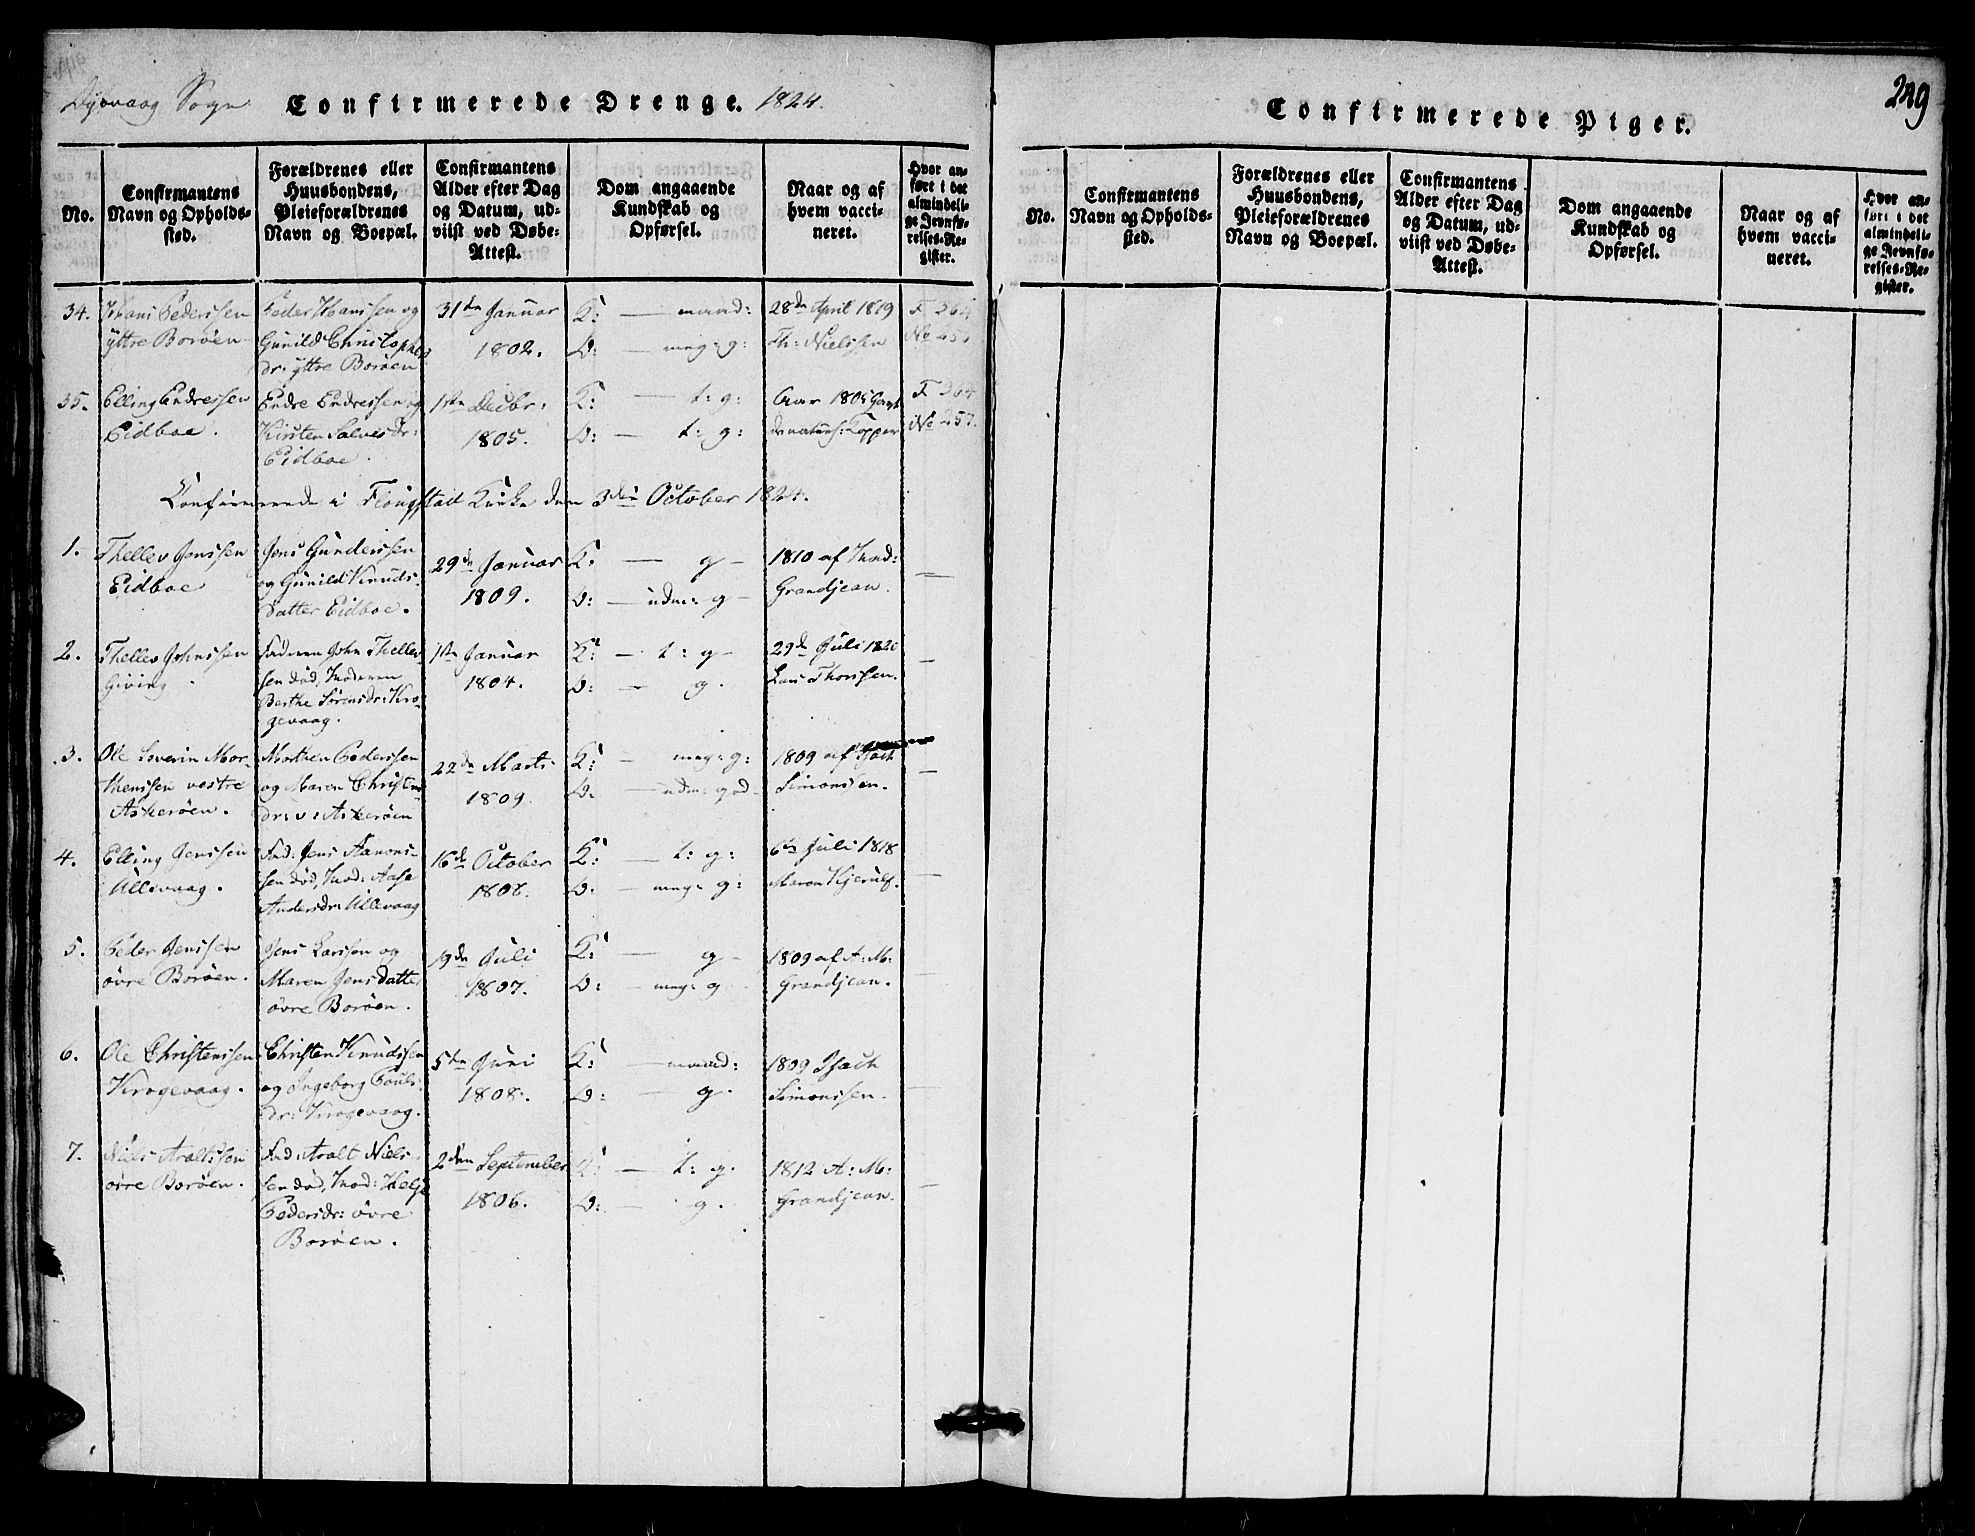 Dyvaag Sogn Confirmerede Drenge. 1824.
No.
Confirmantens Navn og Opholds-
sted.
Forældrenes eller
Huusbondens,
Pleieforældrenes
Navn og Boepæl.
Confirmantens
Alder efter Dag
og Datum, ud-
viist ved Døbe-
Attest.
Dom angaaende
Kundskab og
Opførsel.
Naar og af
hvem vacci-
neret.
Hvor an-
ført i det
almindeli-
ge Jevnfø-
relses-Re-
gister.
34.
Hans Pederssen
yttre Borøen
Peder Hanssen og
Gunild Christophers
dr: yttre Borøen
31te Januar
1802.
K: — maad:
O: — meg: g:
28de April 1819
Th: Nielssen
F 264
No 257
35.
Elling Endressen
Eidboe.
Endre Endressen og
Kirsten Salvesdr:
Eidboe.
1ste Decbr:
1805.
K: — t: g:
O: — t: g:
Aar 1805
F 264
No 257.
Confirmerede i Flougstad Kirke den 3die October 1824.
1.
Thellev Jenssen
Eidboe
Jens Gunderssen
og Gunild Knuds-
datter Eidboe.
29de Januar
1809.
K: — g —
O: — udm: g —
1810 af Mad:
Grandjean.
2.
Thellev Johnssen
Giving
Faderen John Thellev-
sen død, Moderen
Berthe Sørensdr: Kro-
gevaag.
1ste Januar
1804.
K: — t: g —
O: — g.
29de Juli 1820
Lars Thorssen.
3.
Ole Severin Mor-
thenssen vestre
Askerøen.
Morthen Pederssen
og Maren Christens
dr: v: Askerøen
22de Marts
1809.
K: — meg: g:
O: — udm: god —
1809 af Isach
Simonssen.
4.
Elling Jenssen
Ullevaag.
Fad: Jens Aanons-
sen død, Mod: Aase
Andersdr: Ullevaag
16de October
1806.
K: — t: g:
O: — meg: g:
6te Juli 1818
Maren Kjerulf.
5.
Peder Jenssen
øvre Borøen.
Jens Larssen og
Maren Jensdatter
øvre Borøen.
19de Juli
1807.
K: — g —
O: — meg: g
1809 af A: M:
Grandjean.
6.
Ole Christenssen
Krogevaag.
Christen Knudssen
og Ingeborg Pouls-
dr: Krogevaag.
5te Juni
1808.
K: — maad:
O: — g.
1809 Isach
Simonssen.
7.
Niels Araltssen
øvre Borøen.
Fad: Aralt Niels-
sen død, Mod: Helje
Pedersdr: øvre
Borøen.
2den September
1806.
K: — t: g.
O: — g.
1812 A: M:
Grandjean.
249
Confirmerede Piger.
No.
Confirmantens
Navn og Opholds-
sted.
Forældrenes eller
Huusbondens,
Pleieforældrenes
Navn og Boepæl.
Confirmantens
Alder efter Dag
og Datum, ud-
viist ved Døbe-
Attest.
Dom angaaende
Kundskab og
Opførsel.
Naar og af
hvem vacci-
neret.
Hvor an-
ført i det
almindeli-
ge Jevnfø-
relses-Re-
gister.